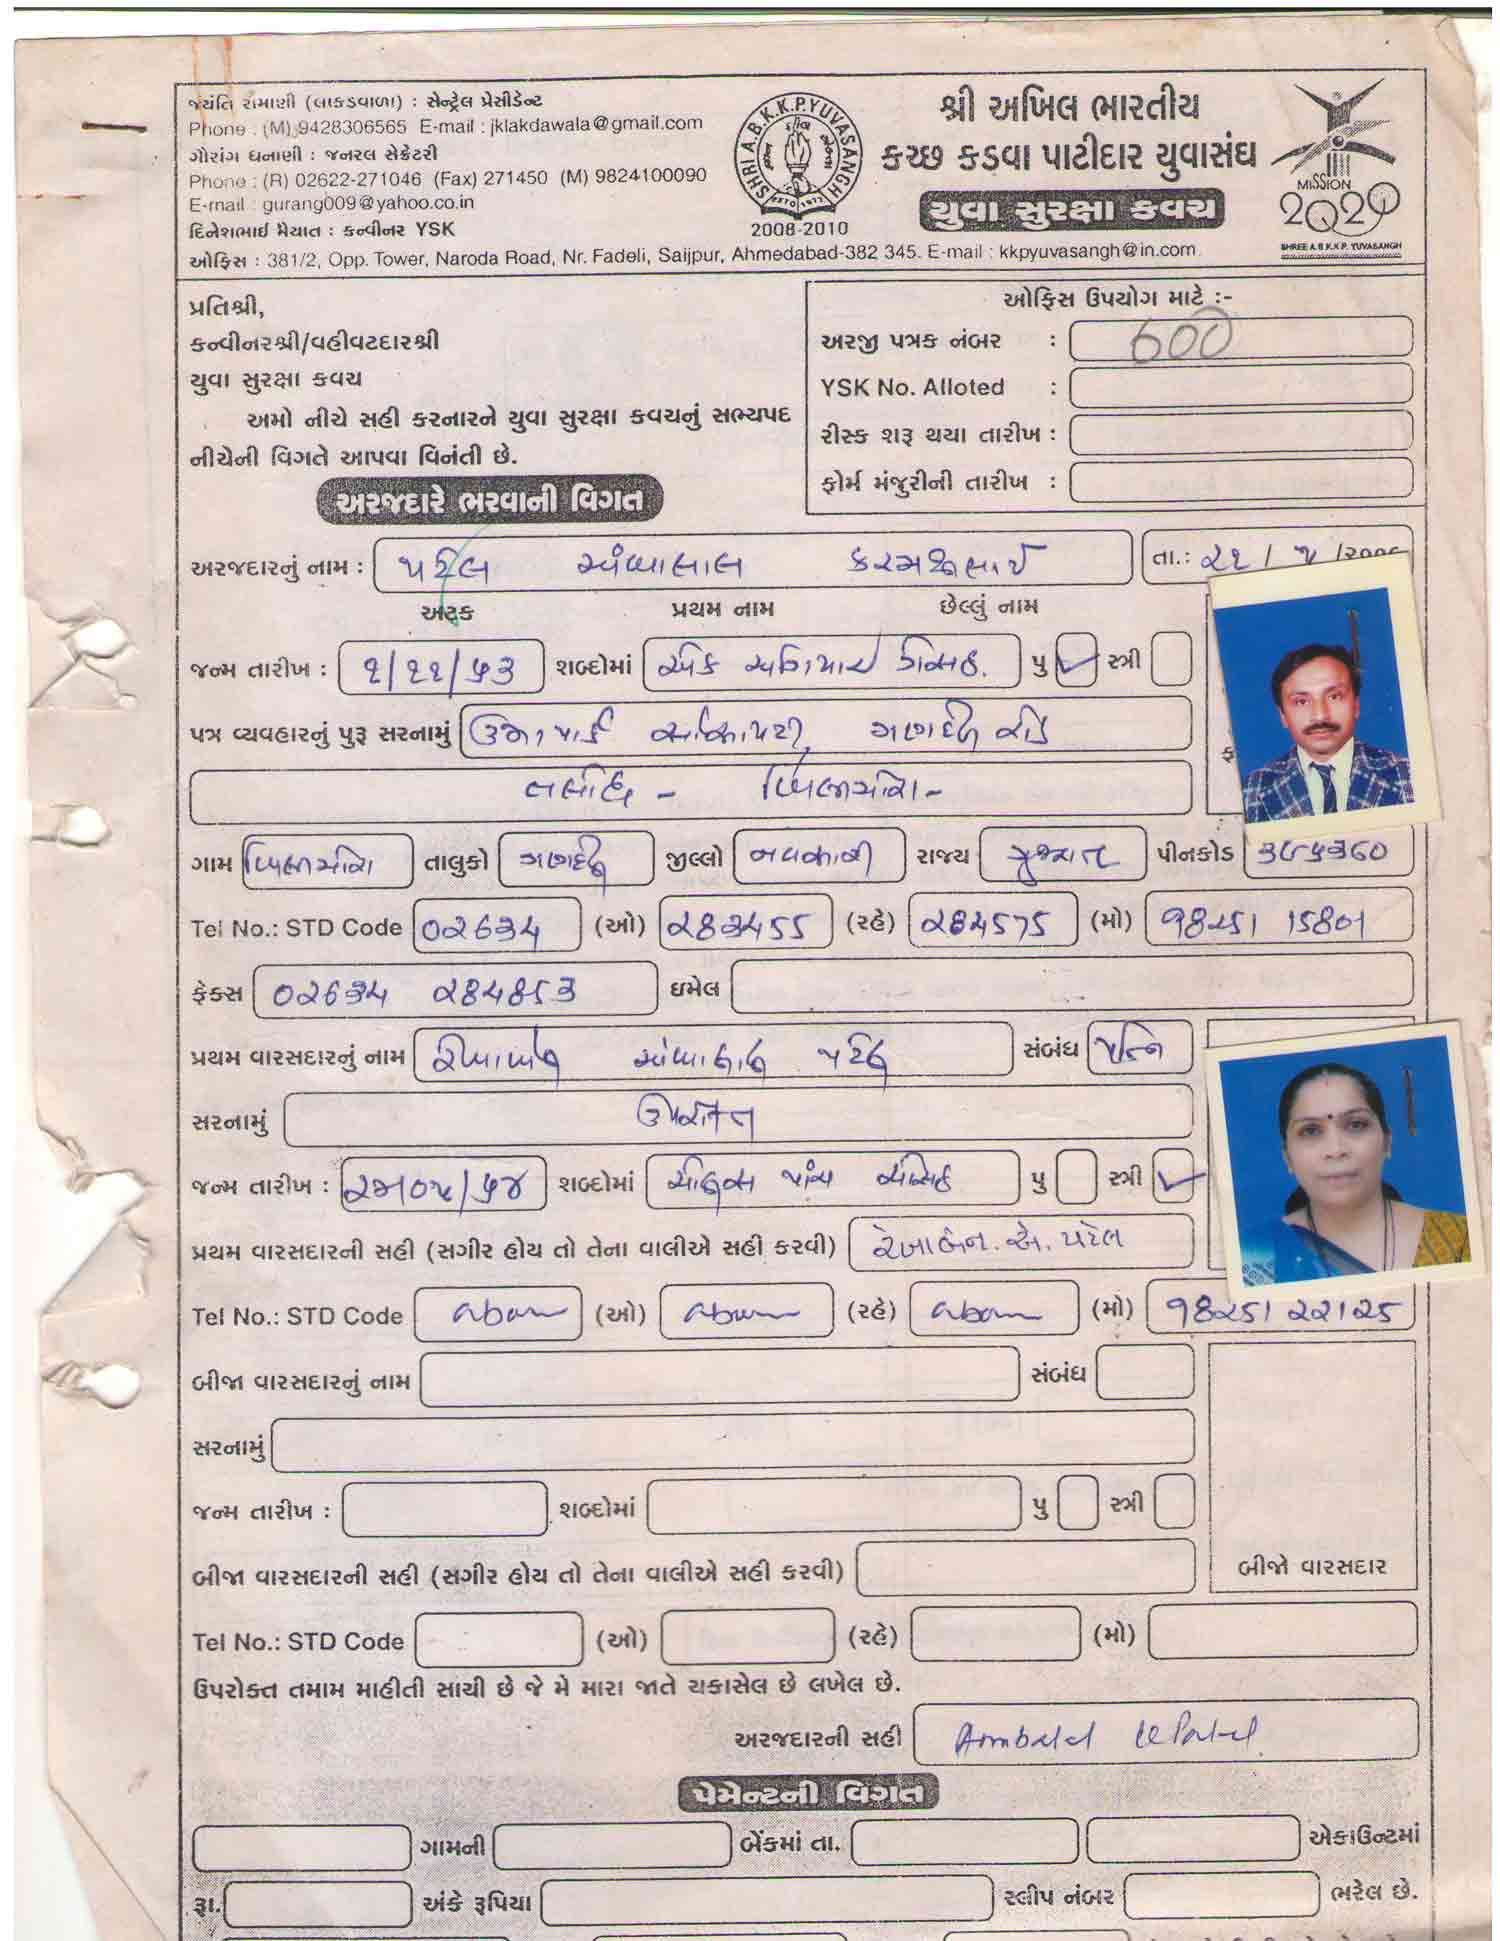 જયંતિ રામાણી (લાકડાવાળા) : સેન્ટ્રેલ પ્રેસીડેન્ટ
Phone : (M) 9428306565 E-mail : jklakdawala@gmail.com
ગૌરાંગ ધનાણી : જનરલ સેક્રેટરી
Phone : (R) 02622-271046 (Fax) 271450 (M) 9824100090
E-mail : gurang009@yahoo.co.in
દિનેશભાઈ મૈયાત : કન્વીનર YSK
SHRI A.B.K.K.P.YUVASANGH
2008-2010
શ્રી અખિલ ભારતીય
કચ્છ કડવા પાટીદાર યુવાસંઘ
યુવા સુરક્ષા કવચ
MISSION
2020
SHREE A.B.K.K.P. YUVASANGH
ઓફિસ : 381/2, Opp. Tower, Naroda Road, Nr. Fadeli, Saijpur, Ahmedabad-382 345. E-mail : kkpyuvasangh@in.com
પ્રતિશ્રી,
કન્વીનરશ્રી/વહીવટદારશ્રી
યુવા સુરક્ષા કવચ
અમો નીચે સહી કરનારને યુવા સુરક્ષા કવચનું સભ્યપદ
નીચેની વિગતે આપવા વિનંતી છે.
ઓફિસ ઉપયોગ માટે :-
અરજી પત્રક નંબર : 600
YSK No. Alloted :
રીસ્ક શરૂ થયા તારીખ :
ફોર્મ મંજુરીની તારીખ :
અરજદારે ભરવાની વિગત
અરજદારનું નામ : પટેલ અંબાલાલ કરમશીભાઈ તા.: ૨૧/
અટક પ્રથમ નામ છેલ્લું નામ
જન્મ તારીખ : ૧/૧૧/૫૩ શબ્દોમાં એક અગિયાર ત્રેપન પુ ✓ સ્ત્રી
પત્ર વ્યવહારનું પુરૂ સરનામું ગણદેવી રોડ
બિલીમોરા-
ગામ બિલીમોરા તાલુકો ગણદેવી જીલ્લો નવસારી રાજ્ય ગુજરાત પીનકોડ
Tel No.: STD Code 02૬૩૪ (ઓ) ૨૮૩૪55 (રહે) ૨૮૪575 (મો) 98૨51 15801
ફેક્સ 02૬૩૪ ૨૮૪૮૬૩ ઇમેલ
પ્રથમ વારસદારનું નામ રેખાબેન અંબાલાલ પટેલ સંબંધ પત્નિ
સરનામું ઉપરોક્ત
જન્મ તારીખ : શબ્દોમાં પાંચ પુ સ્ત્રી ✓
પ્રથમ વારસદારની સહી (સગીર હોય તો તેના વાલીએ સહી કરવી) રેખાબેન. એ. પટેલ
Tel No.: STD Code (ઓ) (રહે) (મો) 98૨51 ૨૨1૨5
બીજા વારસદારનું નામ સંબંધ
સરનામું
જન્મ તારીખ : શબ્દોમાં પુ સ્ત્રી
બીજા વારસદારની સહી (સગીર હોય તો તેના વાલીએ સહી કરવી) બીજો વારસદાર
Tel No.: STD Code (ઓ) (રહે) (મો)
ઉપરોક્ત તમામ માહીતી સાચી છે જે મે મારા જાતે ચકાસેલ છે લખેલ છે.
અરજદારની સહી Ambalal K Patel
પેમેન્ટની વિગત
ગામની બેંકમાં તા. એકાઉન્ટમાં
રૂા. અંકે રૂપિયા સ્લીપ નંબર ભરેલ છે.